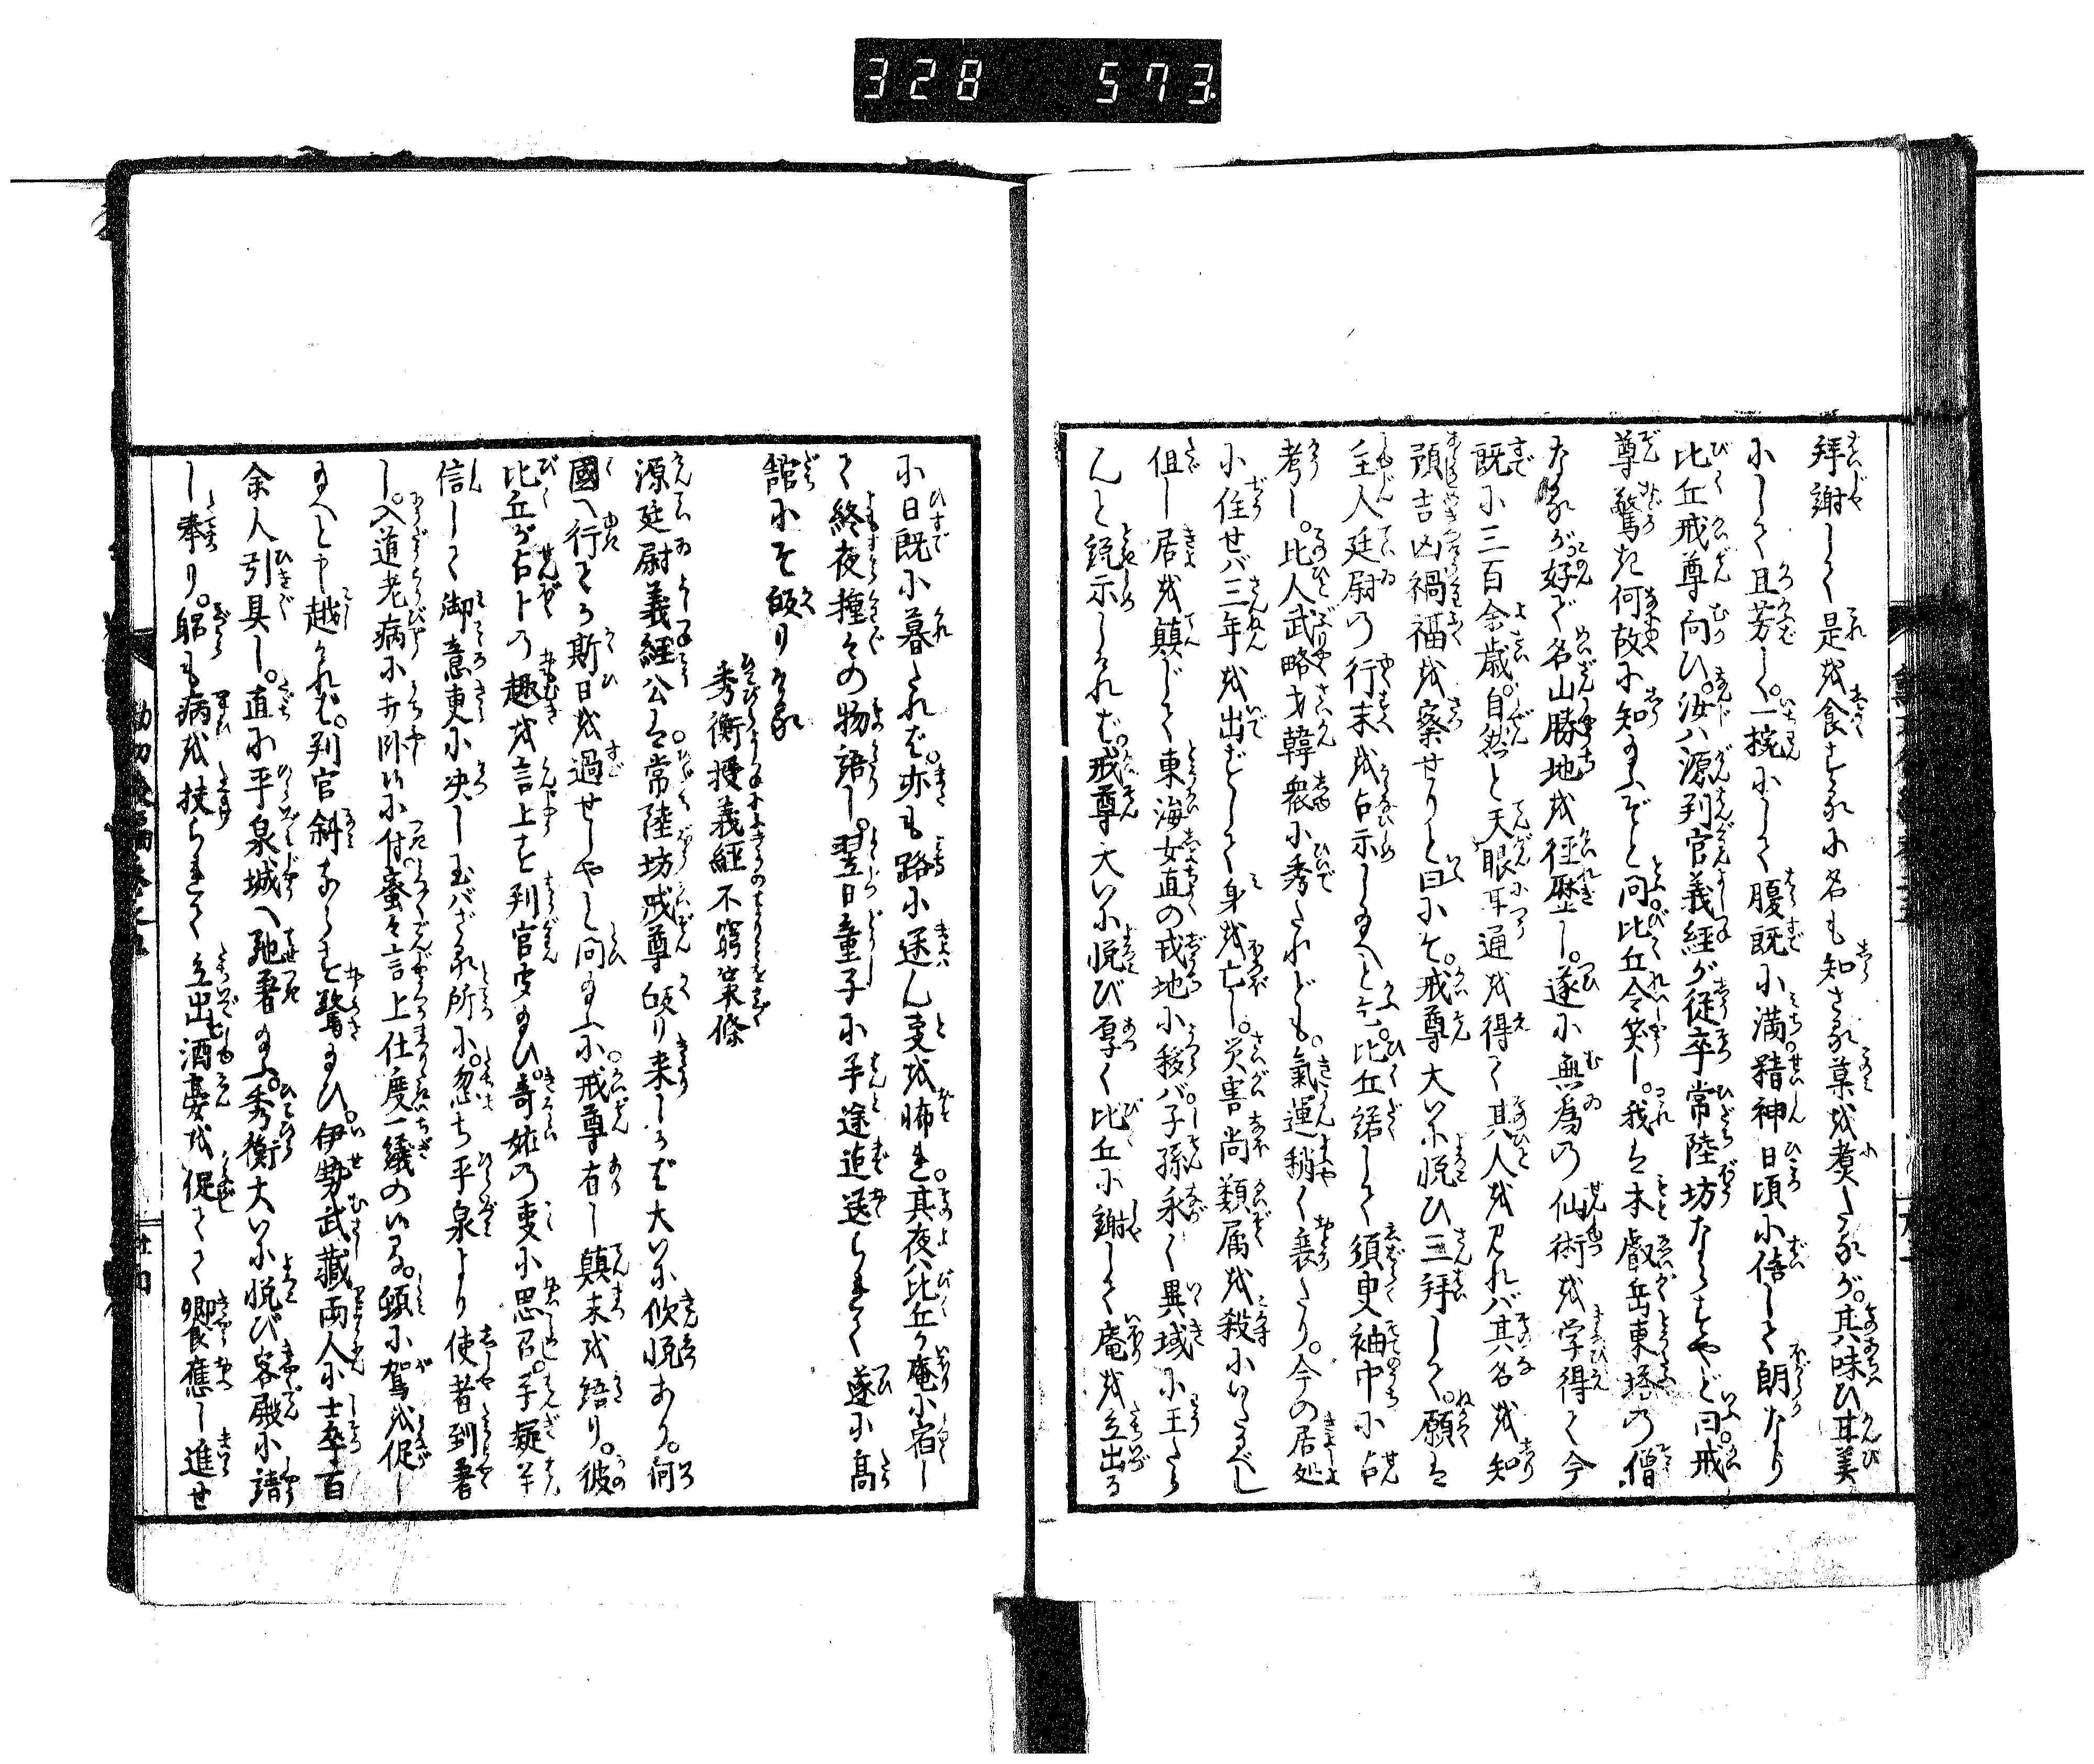 328 573
拜謝して是を食するに名も知ざる菓を煮たるが。其味ひ甘美
にして且芳しく。一椀にして腹既に満。精神日頃に倍して朗なり
比丘戒尊に向ひ。汝ハ源判官義経が従卒常陸坊ならずやと曰。戒
尊驚き何故に知給ふぞと問。比丘含笑し。我は本叡岳東塔の僧
なるが好で名山勝地を徑歴し。遂に無為の仙術を学得て今
既に三百余歳。自然と天眼耳通を得て其人を見れバ其名を知
預吉凶禍福を察せりと曰にぞ。戒尊大いに悦び三拜して。願は
主人廷尉の行末を占示し給へと云。比丘諾して須臾袖中に占
考し。比人武略才韓衆に秀たれども。氣運稍く衰たり。今の居処
に住せバ三年を出ずして身を亡し。災害尚類属を殺にいたるべし
但し居を轉じて東海女直の戎地に移バ。子孫永く異域に王たら
んと説示しければ。戒尊大いに悦び厚く比丘に謝して庵を立出る
に日既に暮たれば。亦も路に迷ん事を怖れ。其夜ハ比丘の庵に宿し
て終夜種々の物語し。翌日童子に半途迄送られて遂に高
舘にぞ皈りける
秀衡授義經不窮策條
源廷尉義經公は常陸坊戒尊皈り来しかば大いに欣悦あり。何
國へ行てか斯日を過せしやと問給ふに。戒尊有し顛末を語り。彼
比丘が占卜の趣を言上す。判官事給ひ。奇妙の事に思召。半疑半
信して御意更に决し玉バざる所に。忽ち平泉より使者到着
し。入道老病に打臥候に付。蜜々言上仕度一議の候る。頓に駕を促し
給へと申越ければ。判官斜ならず驚給ひ。伊勢武藏両人に士卒百
余人引具し。直に平泉城へ馳着給ふ。秀衡大いに悦び客殿に請
し奉り。躬も病を扶られて立出酒宴を促て饗應し進せ